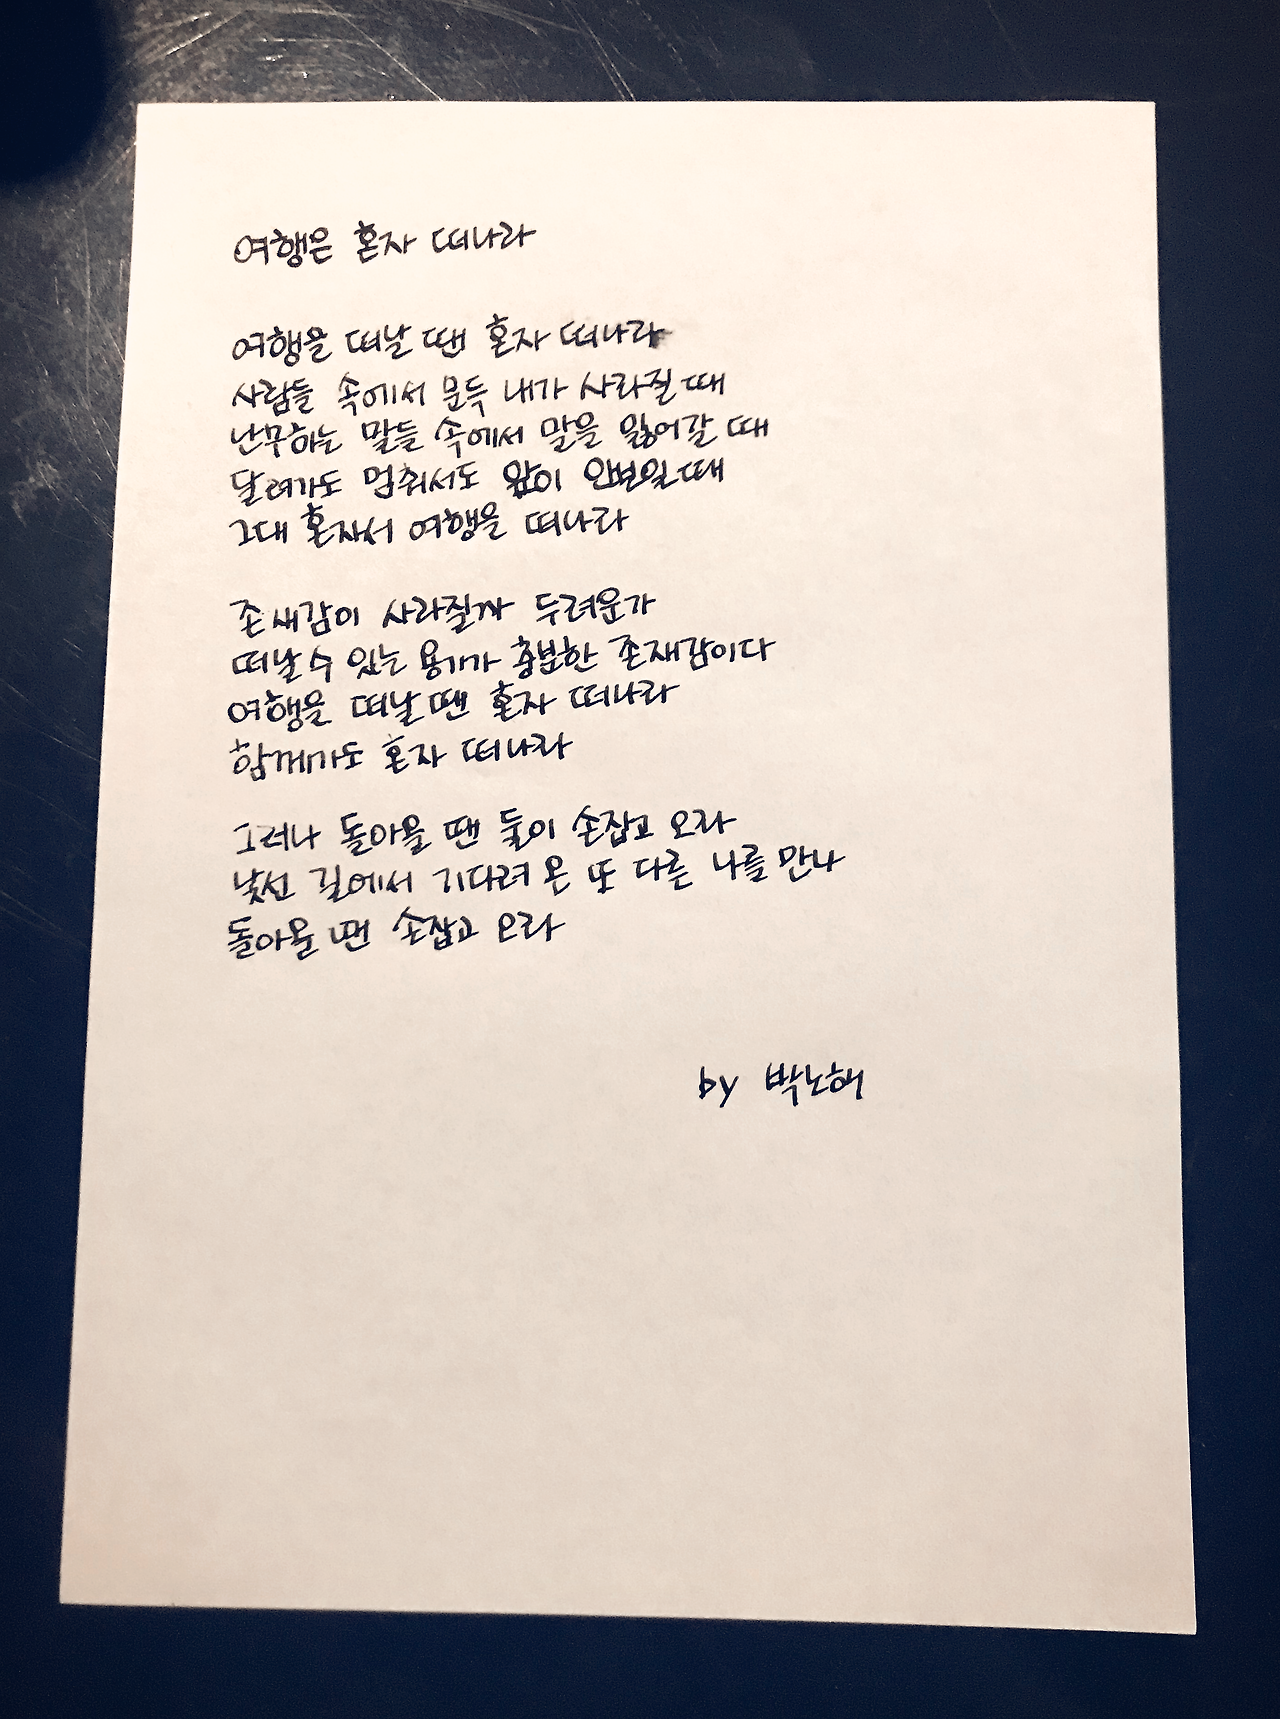 여행은 혼자 떠나라
여행을 떠날 땐 혼자 떠나라
사람들 속에서 문득 내가 사라질 때
난무하는 말들 속에서 말을 잃어갈 때
달려가도 멈춰서도 앞이 안보일때
그대 혼자서 여행을 떠나라
존재감이 사라질까 두려운가
떠날 수 있는 용기가 충분한 존재감이다
여행을 떠날 땐 혼자 떠나라
함께가도 혼자 떠나라
그러나 돌아올 땐 둘이 손잡고 오라
낯선 길에서 기다려 온 또 다른 나를 만나
돌아올 땐 손잡고 오라
by 박노해